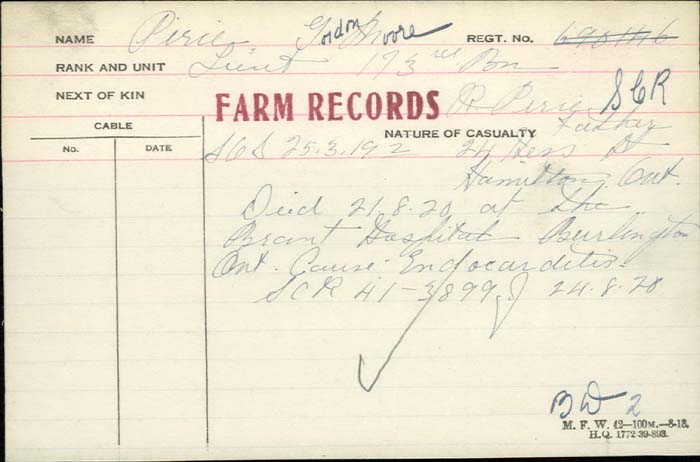 NAME Pirie Gordon Moore REGT. No.
RANK AND UNIT Lieut 173rd Bn
NEXT OF KIN R Pirie SCR
FARM RECORDS
CABLE NATURE OF CASUALTY Father
No. DATE 25.3.192 24 Hess St
Hamilton, Ont.
Died 21.8.20 at the
Brant Hospital Burlington
Ont. Cause Endocarditis.
SCR 41-3899 24.8.20
BW 2
M. F. W. 42—100M.—8-18.
H.Q. 1772-39-893.